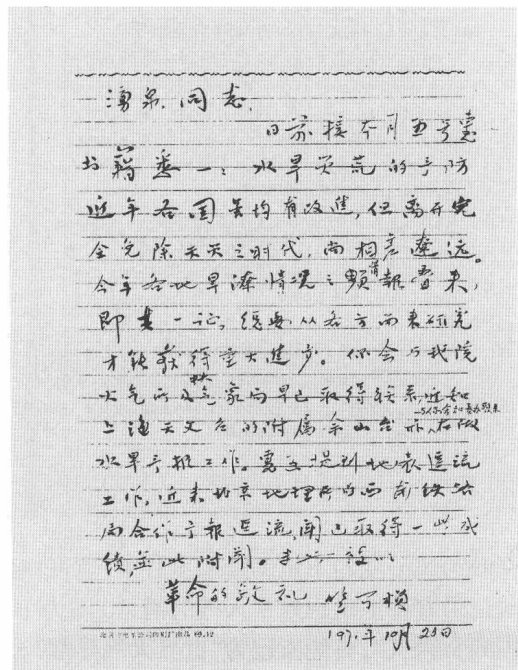 湧泉同志,
日前接本月五号惠
书藉悉一一; 水旱灾荒的予防
近年各国虽均有改进, 但离开完
全免除天灾之时代, 尚相差遼远。
今年各地旱潦情况之频報沓来,
即其一证, 总要从各方面来研究
才能获得重大進步。 你会与我院
大气所及气象局早已取得联系, 近知
上海天文台的附属佘山台亦在做
水旱予报工作。 提到地表迳流
工作, 近来北京地理所与西南铁路
局合作予報迳流, 闻已取得一些成
绩, 並此附闻。 此 致以
革命的敬礼 竺可桢
197 年10月25日